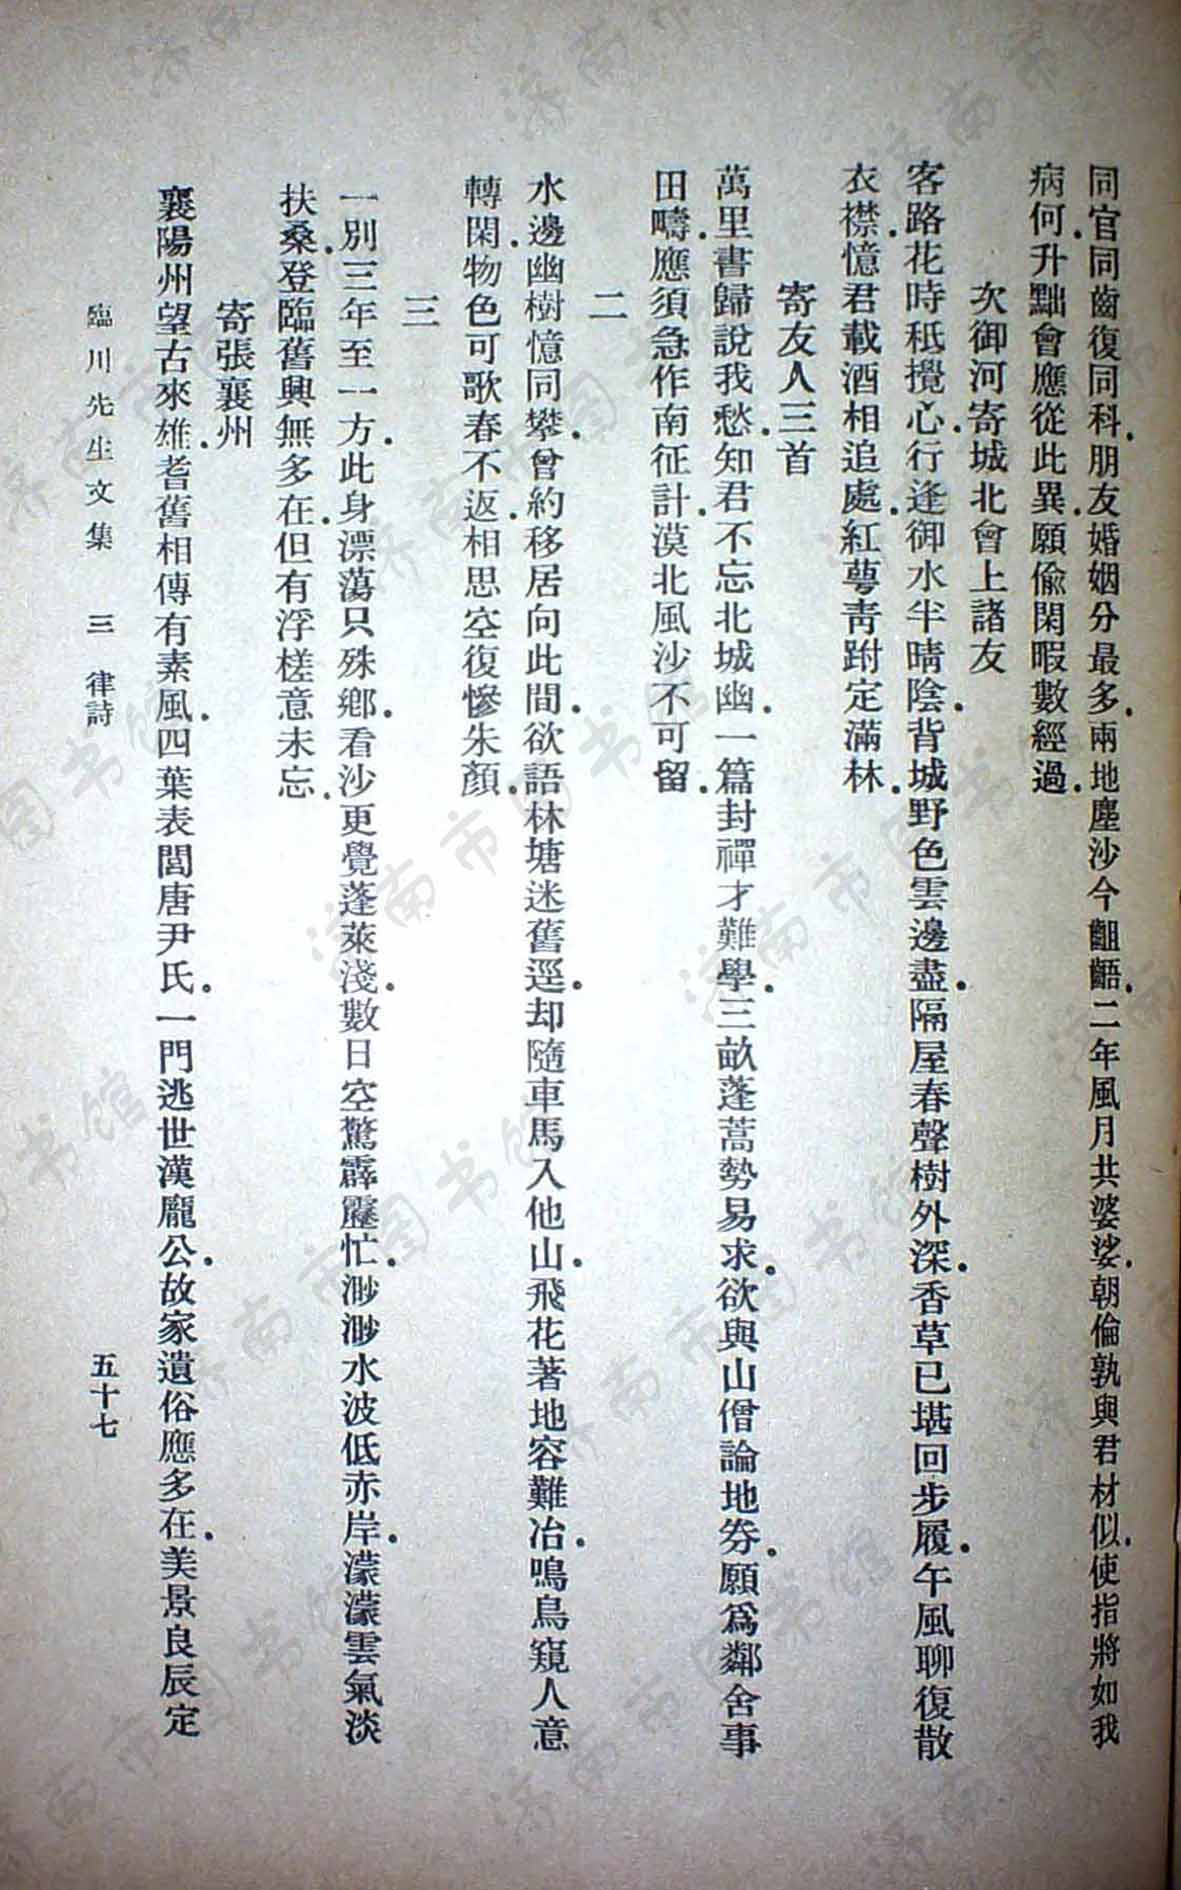 同官同齒復同科．朋友婚姻分最多．兩地塵沙今齟齬．二年風月共婆娑．朝倫孰與君材似．使指將如我
病何．升黜會應從此異．願偷閑暇數經過．
次御河寄城北會上諸友
客路花時秪攪心．行逢御水半晴陰．背城野色雲邊盡．隔屋春聲樹外深．香草已堪回步履．午風聊復散
衣襟．憶君載酒相追處．紅萼靑跗定滿林．
寄友人三首
萬里書歸說我愁．知君不忘北城幽．一篇封禪才難學．三畝蓬蒿勢易求．欲與山僧論地券．願爲鄰舍事
田疇．應須急作南征計．漠北風沙不可留．
二
水邊幽樹憶同攀．曾約移居向此間．欲語林塘迷舊逕．却隨車馬入他山．飛花著地容難冶．鳴鳥窺人意
轉閑．物色可歌春不返．相思空復慘朱顏．
三
一別三年至一方．此身漂蕩只殊鄉．看沙更覺蓬萊淺．數日空驚霹靂忙．渺渺水波低赤岸．濛濛雲氣淡
扶桑．登臨舊興無多在．但有浮槎意未忘．
寄張襄州
襄陽州望古來雄．耆舊相傳有素風．四葉表閭唐尹氏．一門逃世漢龐公．故家遺俗應多在．美景良辰定
臨川先生文集 三 律詩 五十七
济南市图书馆